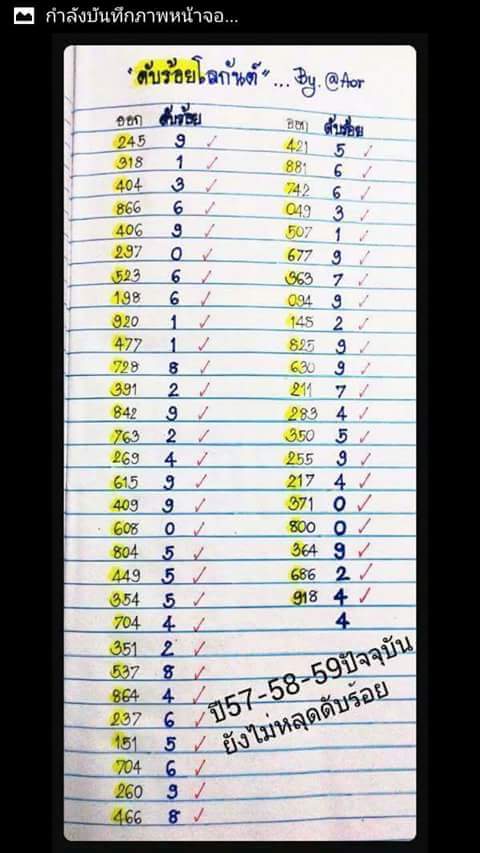 กำลังบันทึกภาพหน้าจอ...
"ดับร้อยโลกันต์"... By. @Aor
ออก ดับร้อย
245 9
318 1
404 3
866 6
406 9
297 0
523 6
198 6
920 1
477 1
728 8
391 2
842 9
763 2
269 4
615 9
409 9
608 0
804 5
449 5
354 5
704 4
351 2
537 8
864 4
237 6
151 5
704 6
260 9
466 8
ออก ดับร้อย
421 5
881 6
742 6
049 3
507 1
677 9
363 7
094 9
145 2
825 9
630 9
211 7
283 4
350 5
255 9
217 4
371 0
800 0
364 9
686 2
918 4
4
ปี57-58-59ปัจจุบัน
ยังไม่หลุดดับร้อย